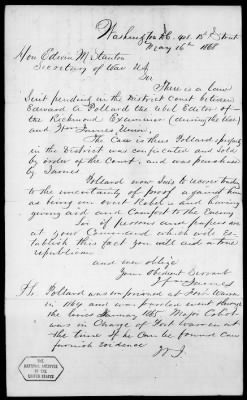 Washington D.C. 15th Street
May 16th 1868
Hon Edwin M. Stanton
Secretary of War U.S.
Sir
There is a law
Suit pending in the District Court between
Edward A Pollard the Evil Editor of
the Richmond Examiner (during the War)
and Wm James
The Case is thus Pollards property
in the District was confiscated and sold
by order of the Court, and was purchased
by James
Pollard now Sues to recover
to the uncertainty of proof against him
as being an overt Rebel & and having
giving aid and Comfort to the Enemy
of persons and papers are
at your Command which will Es-
tablish this fact you will aid a true
republican
and oblige
Your Obedient Servant
Wm James
Ps. Pollard was imprisoned at Fort Warren
in 1864 and was sent through
the lines January 1865 Major Cabot
was in Charge of Fort Warren at
the time if he can be found Can
furnish Evidence
W J
THE
NATIONAL ARCHIVES
OF THE
UNITED STATES